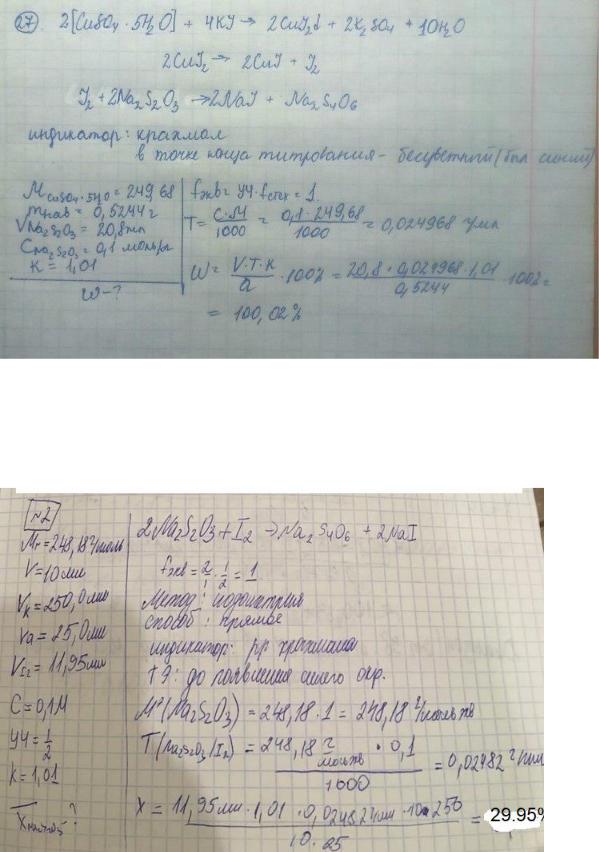 27. 2[CuSO4 · 5H2O] + 4KI → 2CuI2↓ + 2K2SO4 + 10H2O
2CuI2 → 2CuI + I2
I2 + 2Na2S2O3 → 2NaI + Na2S4O6
индикатор: крахмал
в точке конца титрования - бесцветный (был синий)
M CuSO4·5H2O = 249,68
mнав = 0,5244 г
VNa2S2O3 = 20,8 мл
CNa2S2O3 = 0,1 моль/л
K = 1,01
ω - ?
fэкв = УЧ · fстех = 1
T = C·M/1000 = 0,1 · 249,68/1000 = 0,024968 г/мл
W = V·T·K/a · 100% = 20,8 · 0,024968 · 1,01/0,5244 · 100% =
= 100,02%
№2
Mr = 248,18 г/моль
V = 10 мл
Vк = 250,0 мл
Va = 25,0 мл
VI2 = 11,95 мл
C = 0,1 М
УЧ = 1/2
K = 1,01
?
2Na2S2O3 + I2 → Na2S4O6 + 2NaI
fэкв = 2/1 · 1/2 = 1
Метод: йодометрия
способ: прямое
индикатор: рр крахмала
: до появления синего окр.
M*(Na2S2O3) = 248,18 · 1 = 248,18 г/мольэкв
T(Na2S2O3/I2) = 248,18 г/мольэкв · 0,1/1000 = 0,02482 г/мл
X = 11,95 мл · 1,01 · 0,02482 г/мл · 10 · 250/10 · 25 = 29.95%